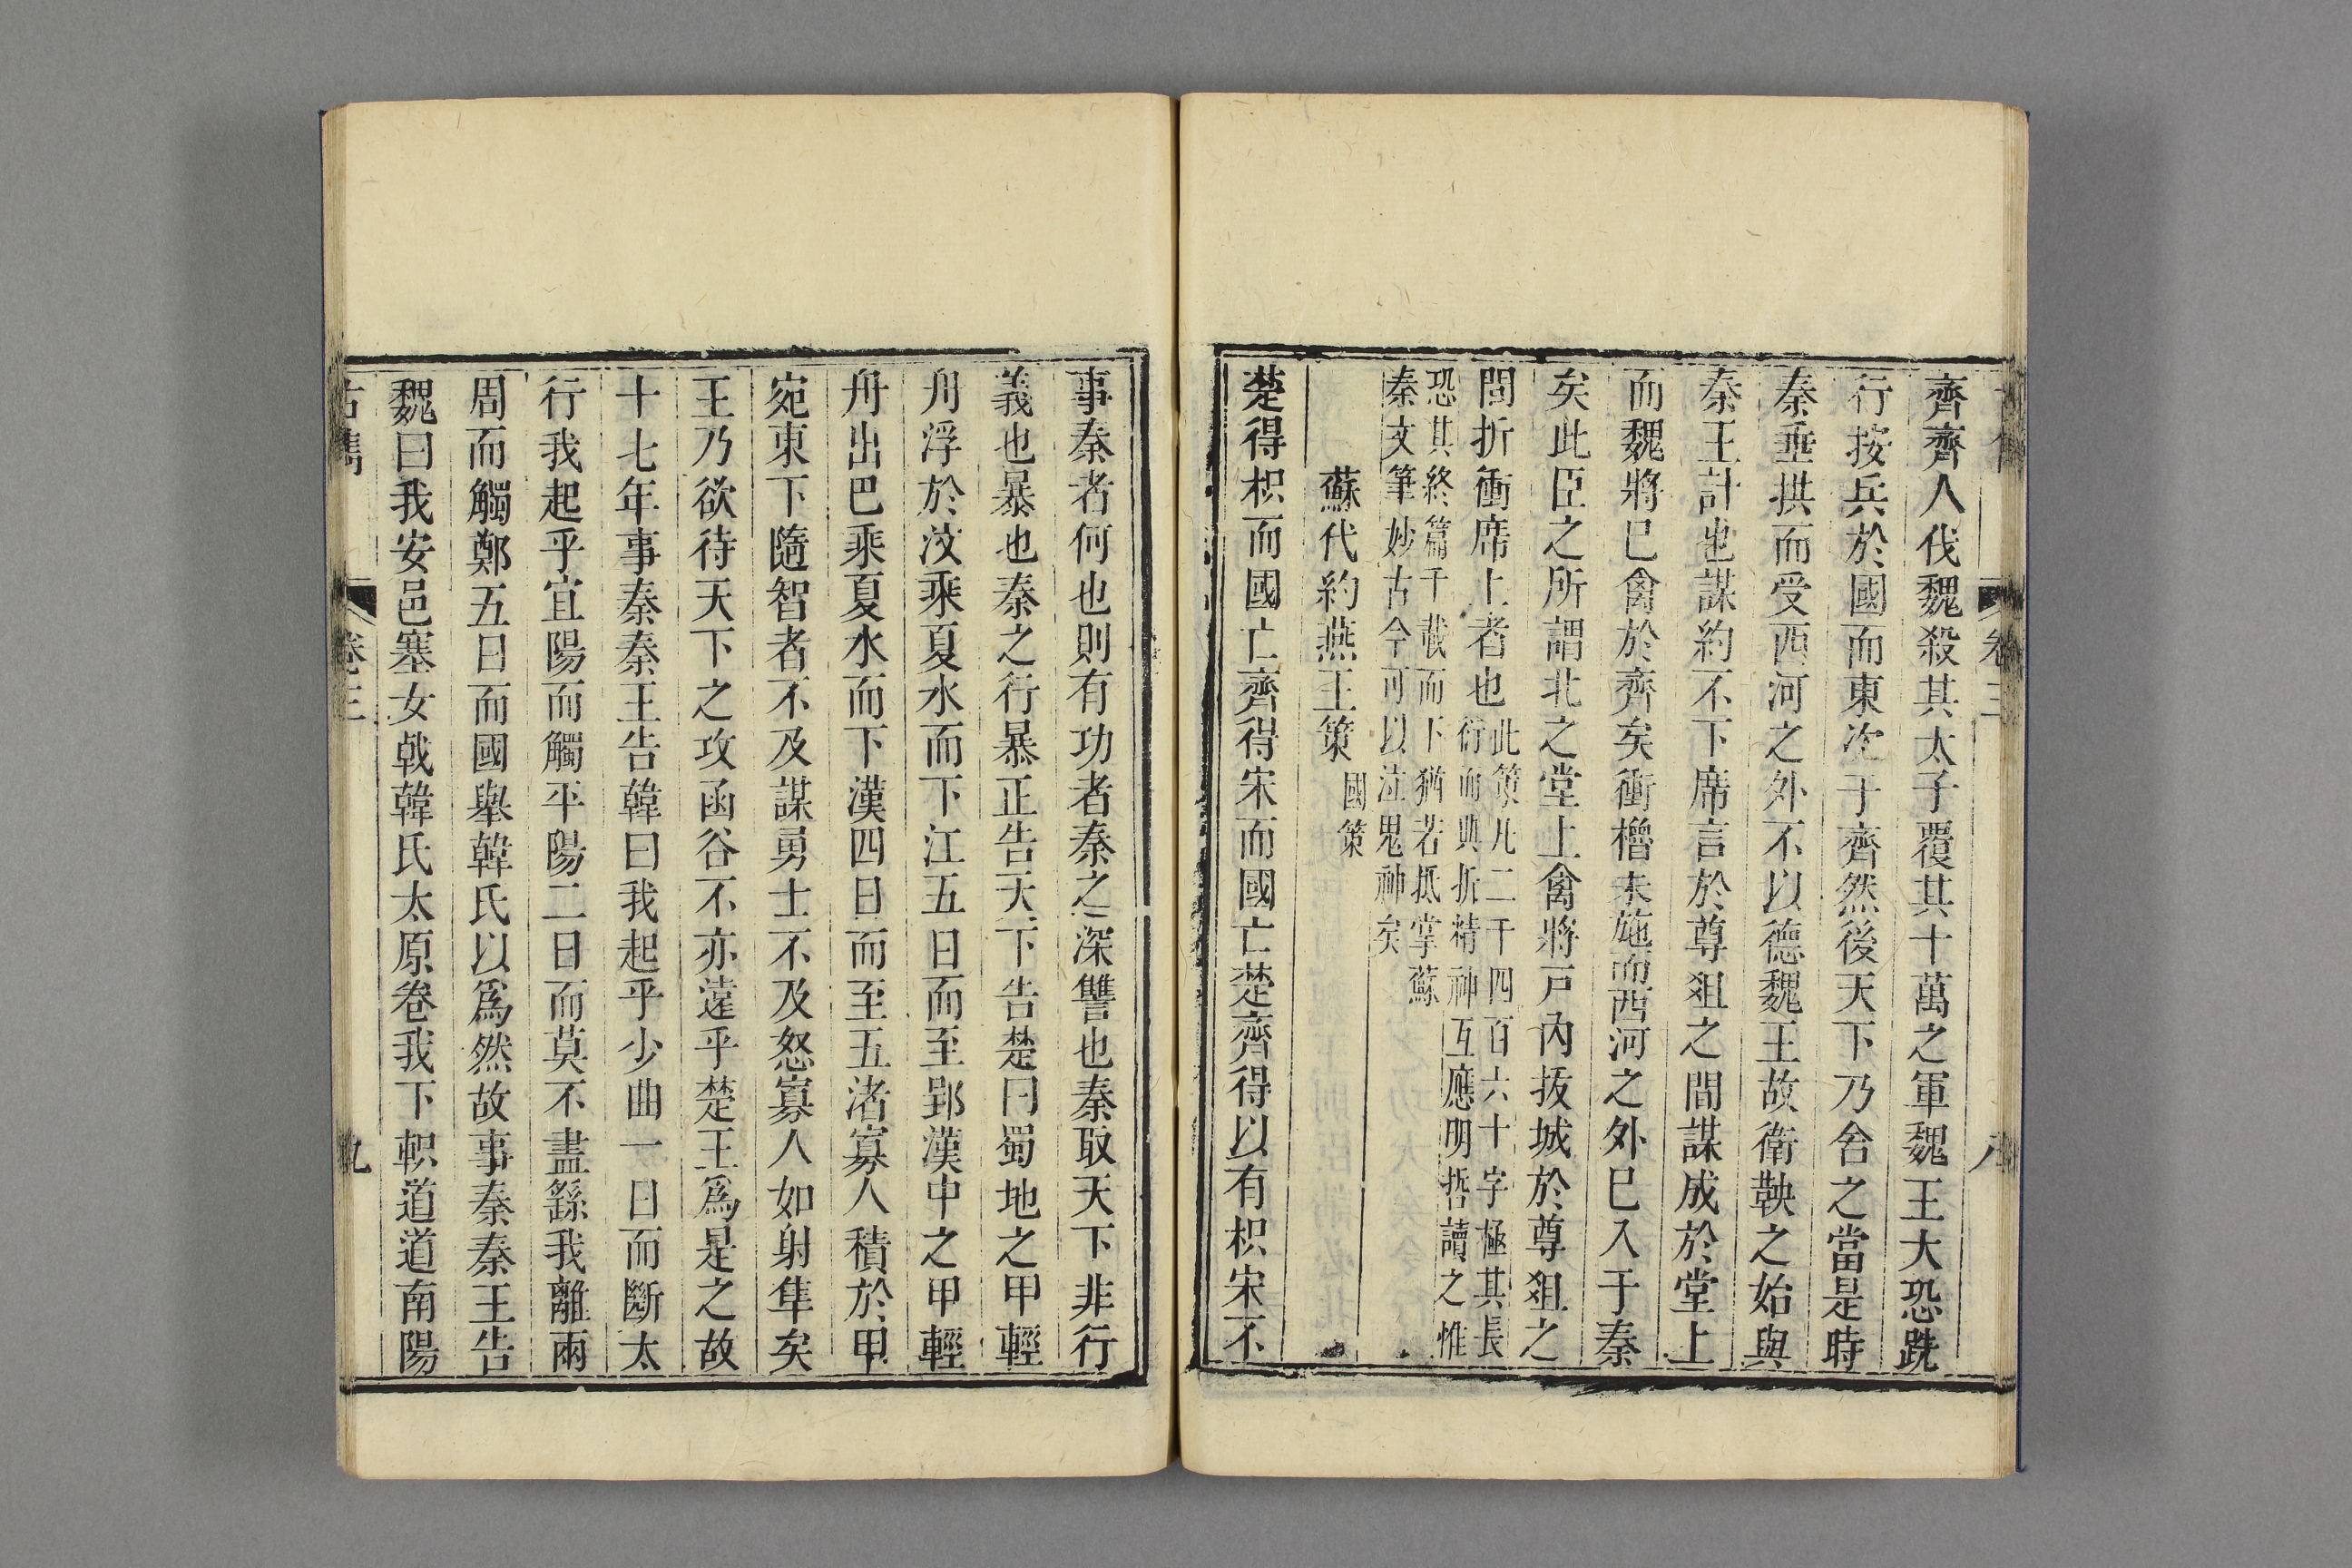 卷三
八
齊齊人伐魏殺其太子覆其十萬之軍魏王大恐跣
行按兵於國而東次于齊然後天下乃舍之當是時
秦垂拱而受西河之外不以德魏王故衛鞅之始與
秦王計也謀約不下席言於尊俎之間謀成於堂上
而魏將已禽於齊矣衝櫓未施而西河之外已入于秦
矣此臣之所謂北之堂上禽將戸內抜城於尊俎之
間折衝席上者也
此策凡二千四百六十字極其長
衍而典折精神互應明哲讀之惟
恐其終篇千載而下猶若抵掌蘇
秦文筆妙古今可以泣鬼神矣
蘇代約燕王策 國策
楚得枳而國亡齊得宋而國亡楚齊得以有枳宋不
事秦者何也則有功者秦之深讐也秦取天下非行
義也暴也秦之行暴正告天下告楚曰蜀地之甲輕
舟浮於汶乘夏水而下江五日而至郢漢中之甲輕
舟出巴乘夏水而下漢四日而至五渚寡人積於甲
宛東下隨智者不及謀勇士不及怒寡人如射隼矣
王乃欲待天下之攻函谷不亦遠乎楚王爲是之故
十七年事秦秦王告韓曰我起乎少曲一日而斷太
行我起乎宜陽而觸平陽二日而莫不盡繇我離兩
周而觸鄭五日而國舉韓氏以爲然故事秦秦王告
魏曰我安邑塞女戟韓氏太原卷我下軹道道南陽
古雋
卷三
九